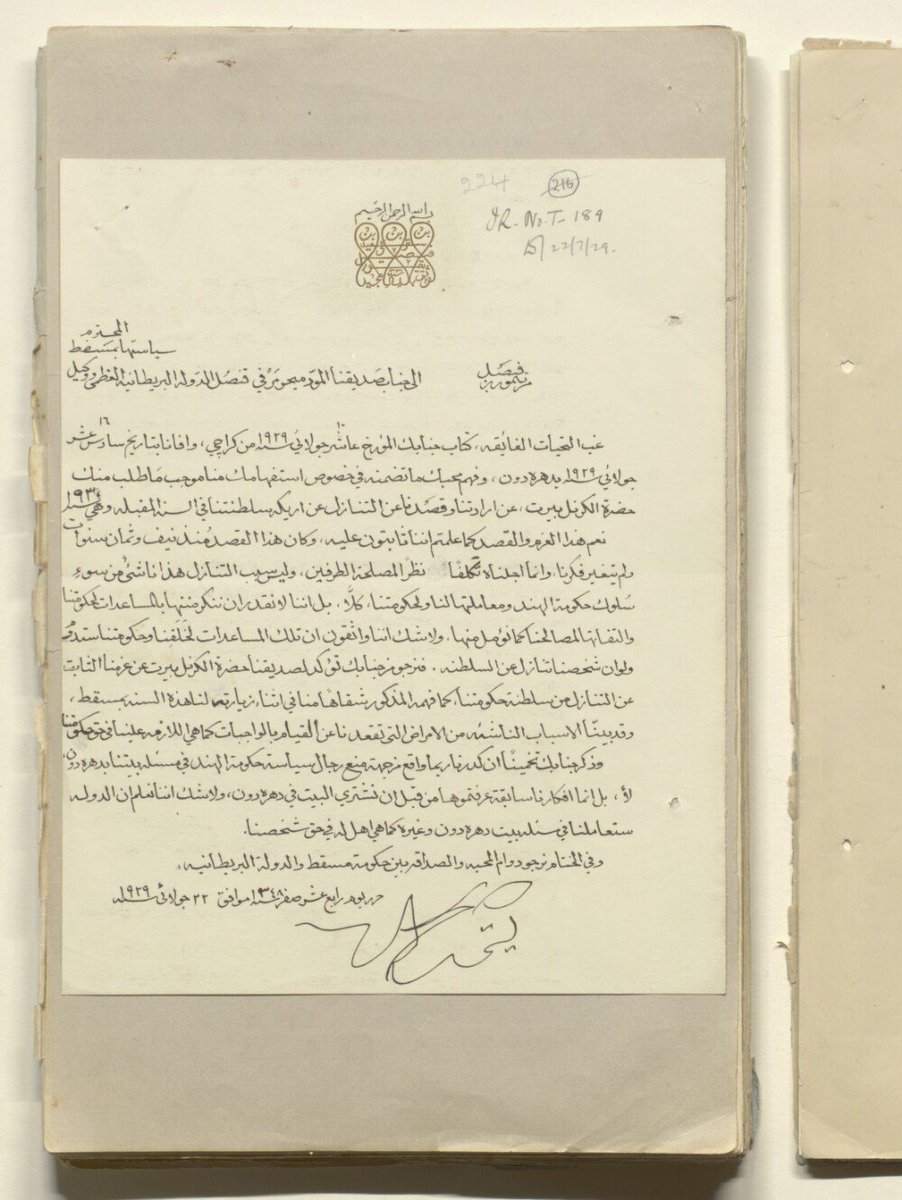 224
216
IR. No. T- 189
22/7/29.
بسم الله الرحمن الرحيم
المحترم
سياستها بمسقط
من تيمور بن فيصل الى جناب صديقنا المود ميجر مرفي قنصل الدولة البريطانية العظمى ووكيل
غب التحيات الفائقه، كتاب جنابك المؤرخ عاشر ١٠ جولائي سنة ١٩٢٩ من كراچي، وافانا بتاريخ سادس عشر ١٦
جولائي سنة ١٩٢٩ بدهره دون، وفهم محبك ما تضمنه في خصوص استفهامك منا موجب ما طلب منك
حضرة الكرنل بيرت، عن ارادتنا وقصدنا عن التنازل عن اريكة سلطنتنا في السنة المقبله وهي سنة ١٩٣٠
نعم هذا العزم والقصد كما علمتم اننا ثابتون عليه، وكان هذا القصد منذ نيف وثمان سنوات
ولم يتغير فكرنا، وانما اجلناه تكلفًا نظرًا لمصلحة الطرفين، وليس سبب التنازل هذا ناشئ من سوء
سلوك حكومة الهند ومعاملتها لنا ولحكومتنا، كلّا، بل اننا لا نقدر ان ننكر منتها بالمساعدات لحكومتنا
والتفاتها لمصالحنا كما نؤمل منها، ولا شك اننا واثقون ان تلك المساعدات لخلفنا وحكومتنا ستدوم
ولو ان شخصنا تنازل عن السلطنه. فنرجو من جنابك تؤكد لصديقنا حضرة الكرنل بيرت عن عزمنا الثابت
عن التنازل من سلطنة حكومتنا، كما فهمه المذكور شفاهًا منا في اثناء زيارته لنا هذه السنه بمسقط،
وقد بينّا الاسباب الناشئه من الامراض التي تقعدنا عن القيام بالواجبات كما هي اللازمه علينا في حق حكومتنا
وذكر جنابك تخمينًا أن كدرنا ربما واقع من جهة منع رجال سياسة حكومة الهند في مسئلة بيتنا بدهره دون،
لأ، بل انما افكارنا سابقة عرفتموها من قبل ان نشتري البيت في دهره دون، ولا شك اننا نعلم ان الدوله
ستعاملنا في مسئلة بيت دهره دون وغيره كما هي اهل له في حق شخصنا.
وفي الختام نرجو دوام المحبه والصداقه بين حكومة مسقط والدولة البريطانيه،
حرر يوم رابع عشر صفر سنة ١٣٤٨ موافق ٢٢ جولائي سنة ١٩٢٩